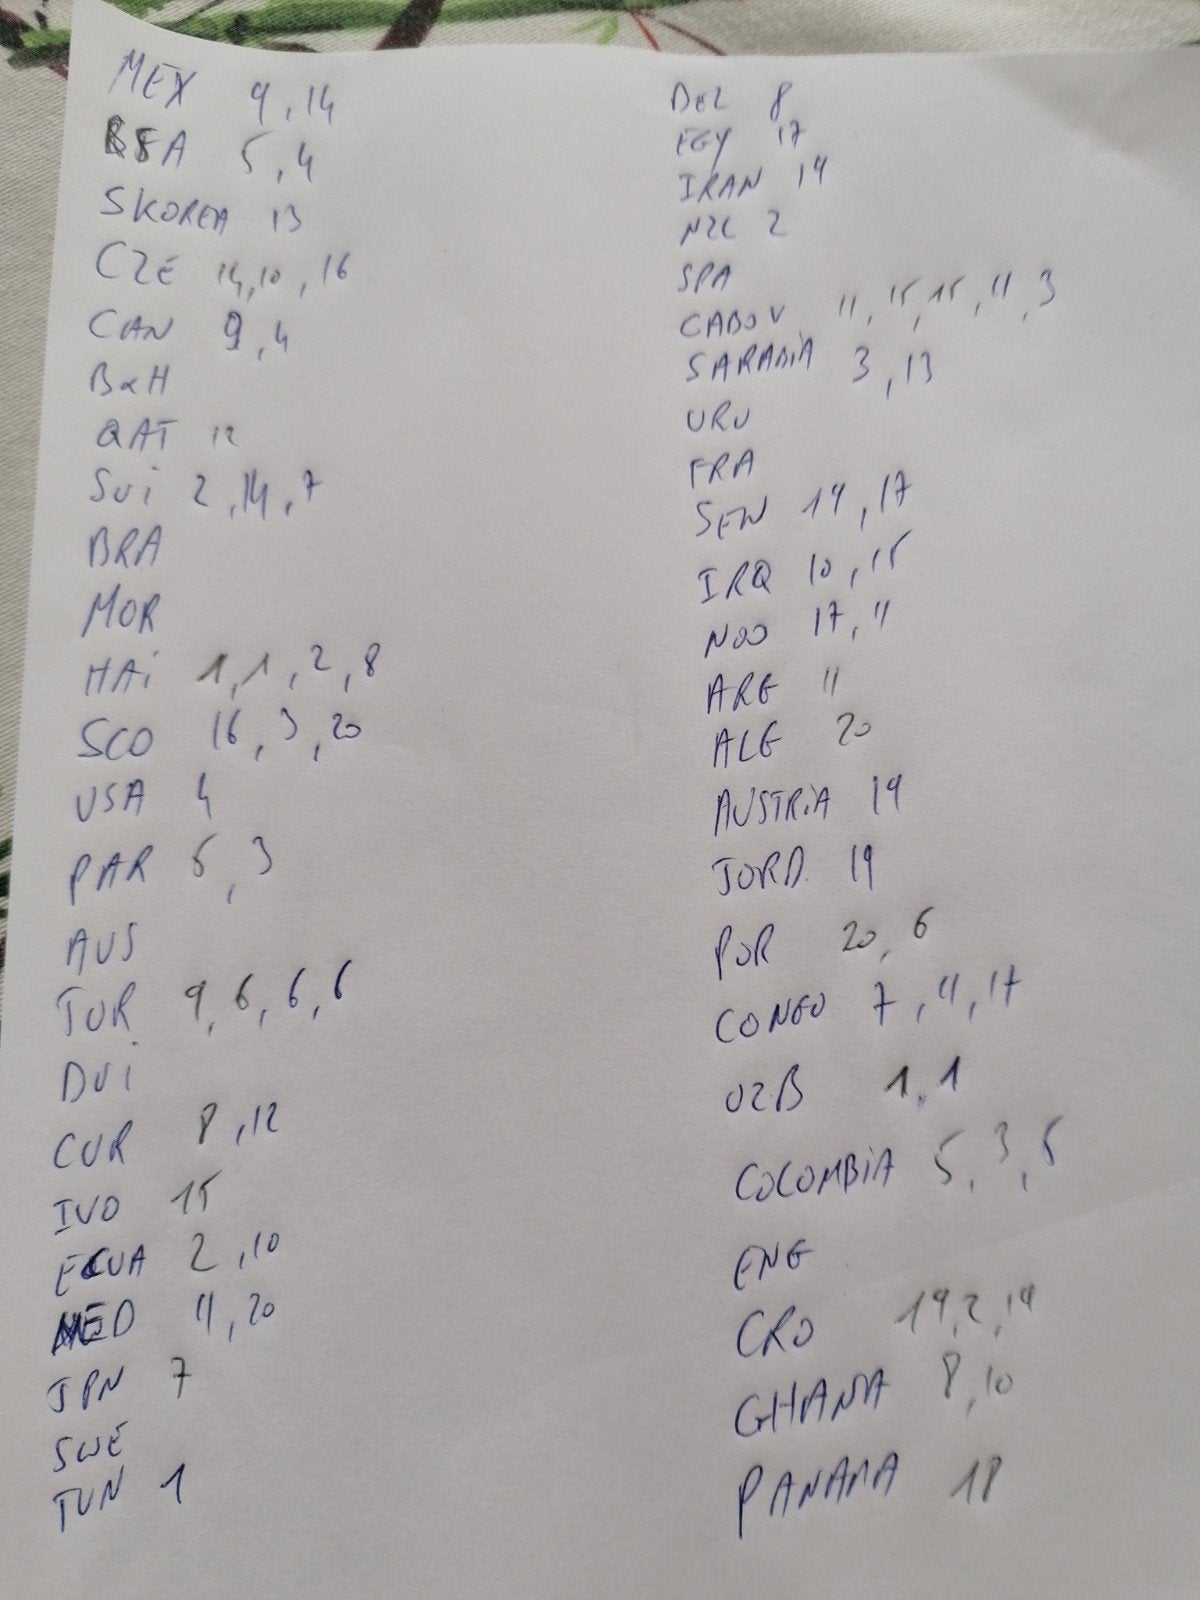 MEX 9, 14
RSA 5, 4
SKOREA 13
CZE 14, 10, 16
CAN 9, 4
B&H
QAT 12
SUi 2, 14, 7
BRA
MOR
HAi 1, 1, 2, 8
SCO 16, 3, 20
USA 4
PAR 5, 3
AUS
TUR 9, 6, 6, 6
DUi
CUR 8, 12
IVO 15
ECUA 2, 10
NED 11, 20
JPN 7
SWE
TUN 1
BEL 8
EGY 17
IRAN 14
NZL 2
SPA
CABOV 11, 15, 15, 11, 3
SARABiA 3, 13
URU
FRA
SEN 19, 17
IRQ 10, 15
NOO 17, 11
ARG 11
ALG 20
AUSTRiA 19
JORD. 19
POR 20, 6
CONGO 7, 11, 17
UZB 1, 1
COLOMBiA 5, 3, 5
ENG
CRO 19, 2, 19
GHANA 8, 10
PANAMA 18